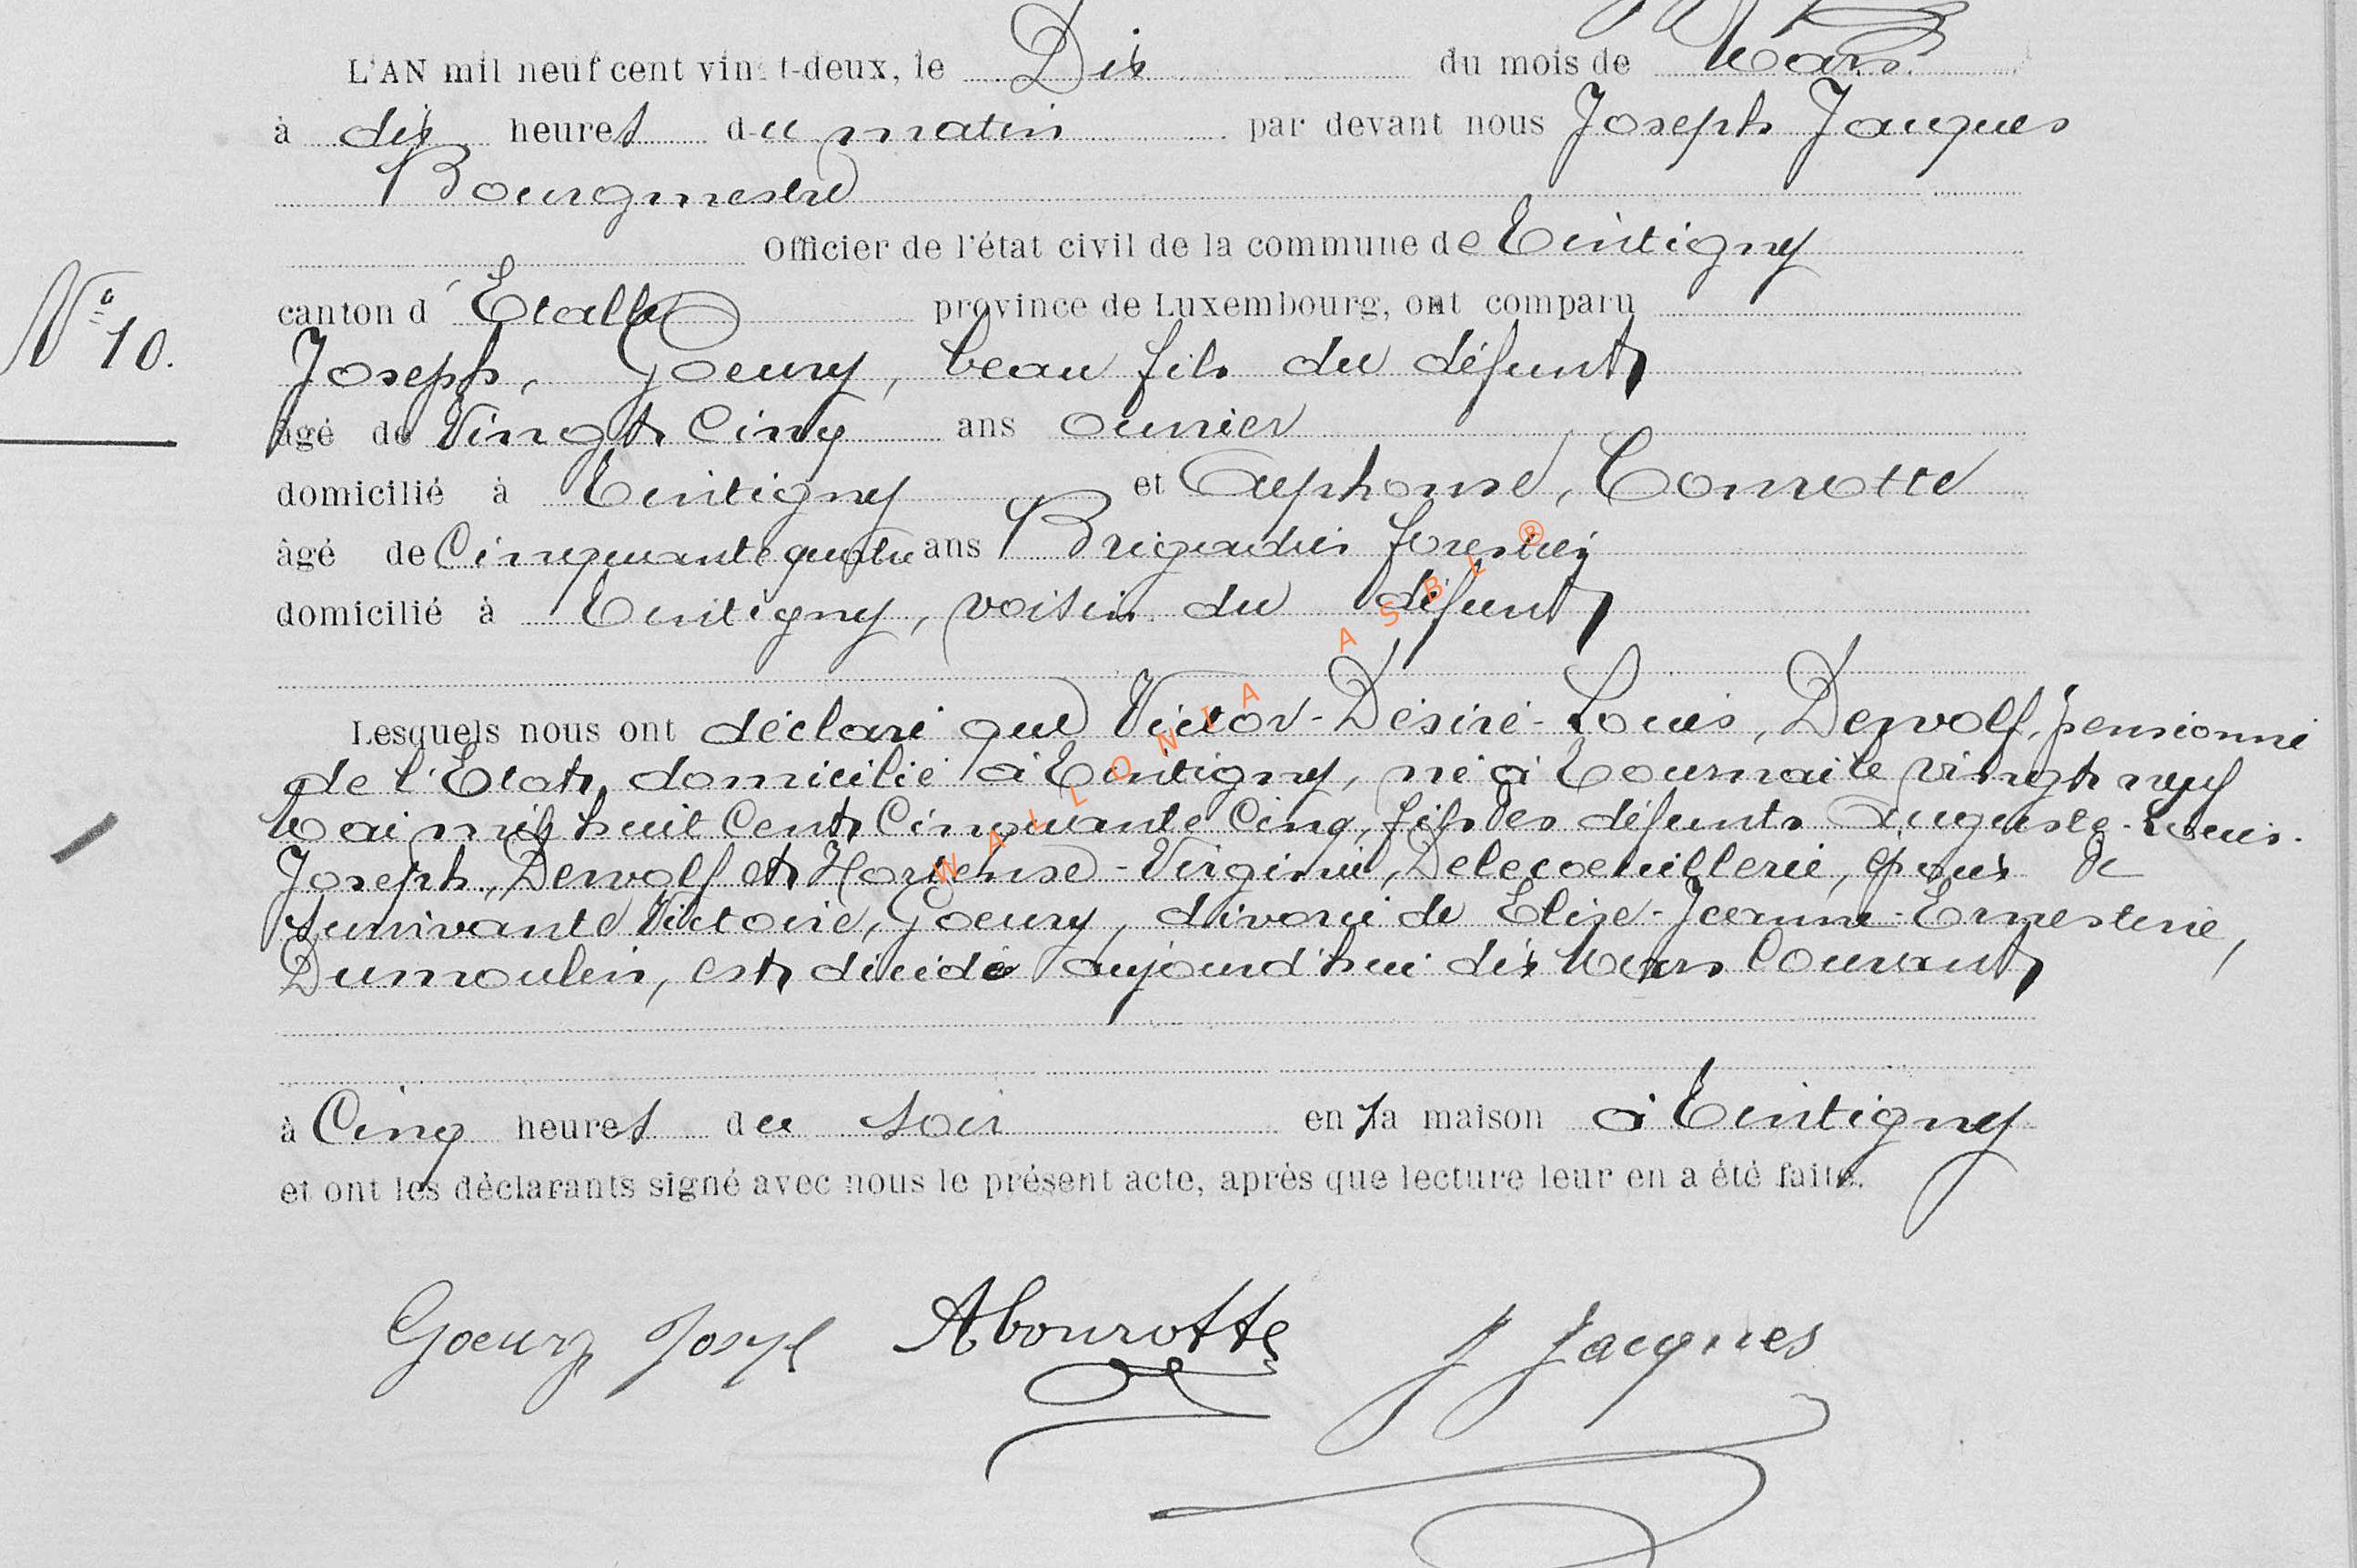 L'AN mil neuf cent vingt-deux, le Dix du mois de Mars
à dix heures du matin par devant nous Joseph Jacques
Bourgmestre
Officier de l'état civil de la commune de Tintigny
N° 10.
canton d'Etalle province de Luxembourg, ont comparu
Joseph, Goeury, beau fils du défunt
âgé de Vingt Cinq ans ouvrier
domicilié à Tintigny et Alphonse, Bourotte
âgé de Cinquante quatre ans Brigadier forestier
domicilié à Tintigny, voisin du défunt
Lesquels nous ont déclaré que Victor-Désiré-Louis, Dewolf, pensionné
de l'Etat, domicilié à Tintigny, né à Tournai le vingt neuf
Mai mil huit Cent Cinquante Cinq, fils des défunts Auguste-Louis-
Joseph, Dewolf et Hortense-Virginie, Delecoeuillerie, époux de
survivante Victoire, Goeury, divorcé de Elise-Jeanne-Ernestine,
Dumoulin, est décédé aujourd'hui dix Mars Courant
à Cinq heures du soir en sa maison à Tintigny
et ont les déclarants signé avec nous le présent acte, après que lecture leur en a été faite.
Goeury Joseph ABourotte J Jacques
WALLONIA ASBL ®